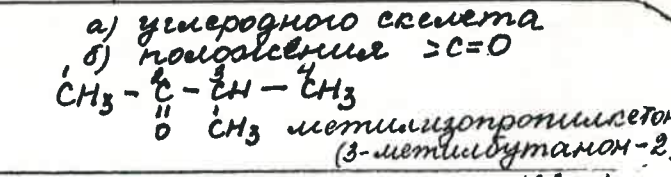 а) углеродного скелета
б) положения >C=O
1 2 3 4
CH₃ – C – CH – CH₃
|| |
O CH₃ метилизопропилкетон
(3-метилбутанон-2)